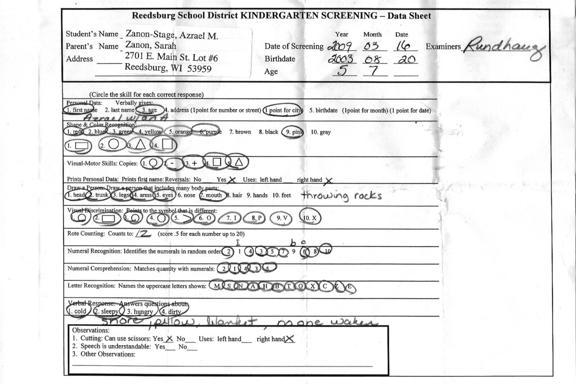 Reedsburg School District KINDERGARTEN SCREENING – Data Sheet
Student's Name Zanon-Stage, Azrael M.
Parent's Name Zanon, Sarah
Address 2701 E. Main St. Lot #6
Reedsburg, WI 53959
Year Month Date
Date of Screening 2009 03 16 Examiners Rundhaug
Birthdate 2003 08 20
Age 5 7
(Circle the skill for each correct response)
Personal Data: Verbally gives:
1. first name 2. last name 3. age 4. address (1point for number or street) 1 point for city 5. birthdate (1point for month) (1 point for date)
Shape & Color Recognition:
1. red 2. blue 3. green 4. yellow 5. orange 6. purple 7. brown 8. black 9. pink 10. gray
1. 2. 3. 4.
Visual-Motor Skills: Copies: 1. 2. - 3. + 4. 5.
Prints Personal Data: Prints first name: Reversals: No Yes X Uses: left hand right hand X
Draw a Person: Draw a person that includes many body parts:
1. head 2. trunk 3. legs 4. arms 5. eyes 6. nose 7. mouth 8. hair 9. hands 10. feet throwing rocks
Visual Discrimination: Points to the symbol that is different:
1. 2. 3. 4. 5. 6. O 7. I 8. P 9. V 10. X
Rote Counting: Counts to 12 (score .5 for each number up to 20)
Numeral Recognition: Identifies the numerals in random order
Numeral Comprehension: Matches quantity with numerals: 2 1 4 3
Letter Recognition: Names the uppercase letters shown: M S N A H B T O X C
Verbal Response: Answers questions about:
1. cold 2. sleepy 3. hungry 4. dirty
snore, pillow, blanket, no one
Observations:
1. Cutting: Can use scissors: Yes X No Uses: left hand right hand X
2. Speech is understandable: Yes No
3. Other Observations: